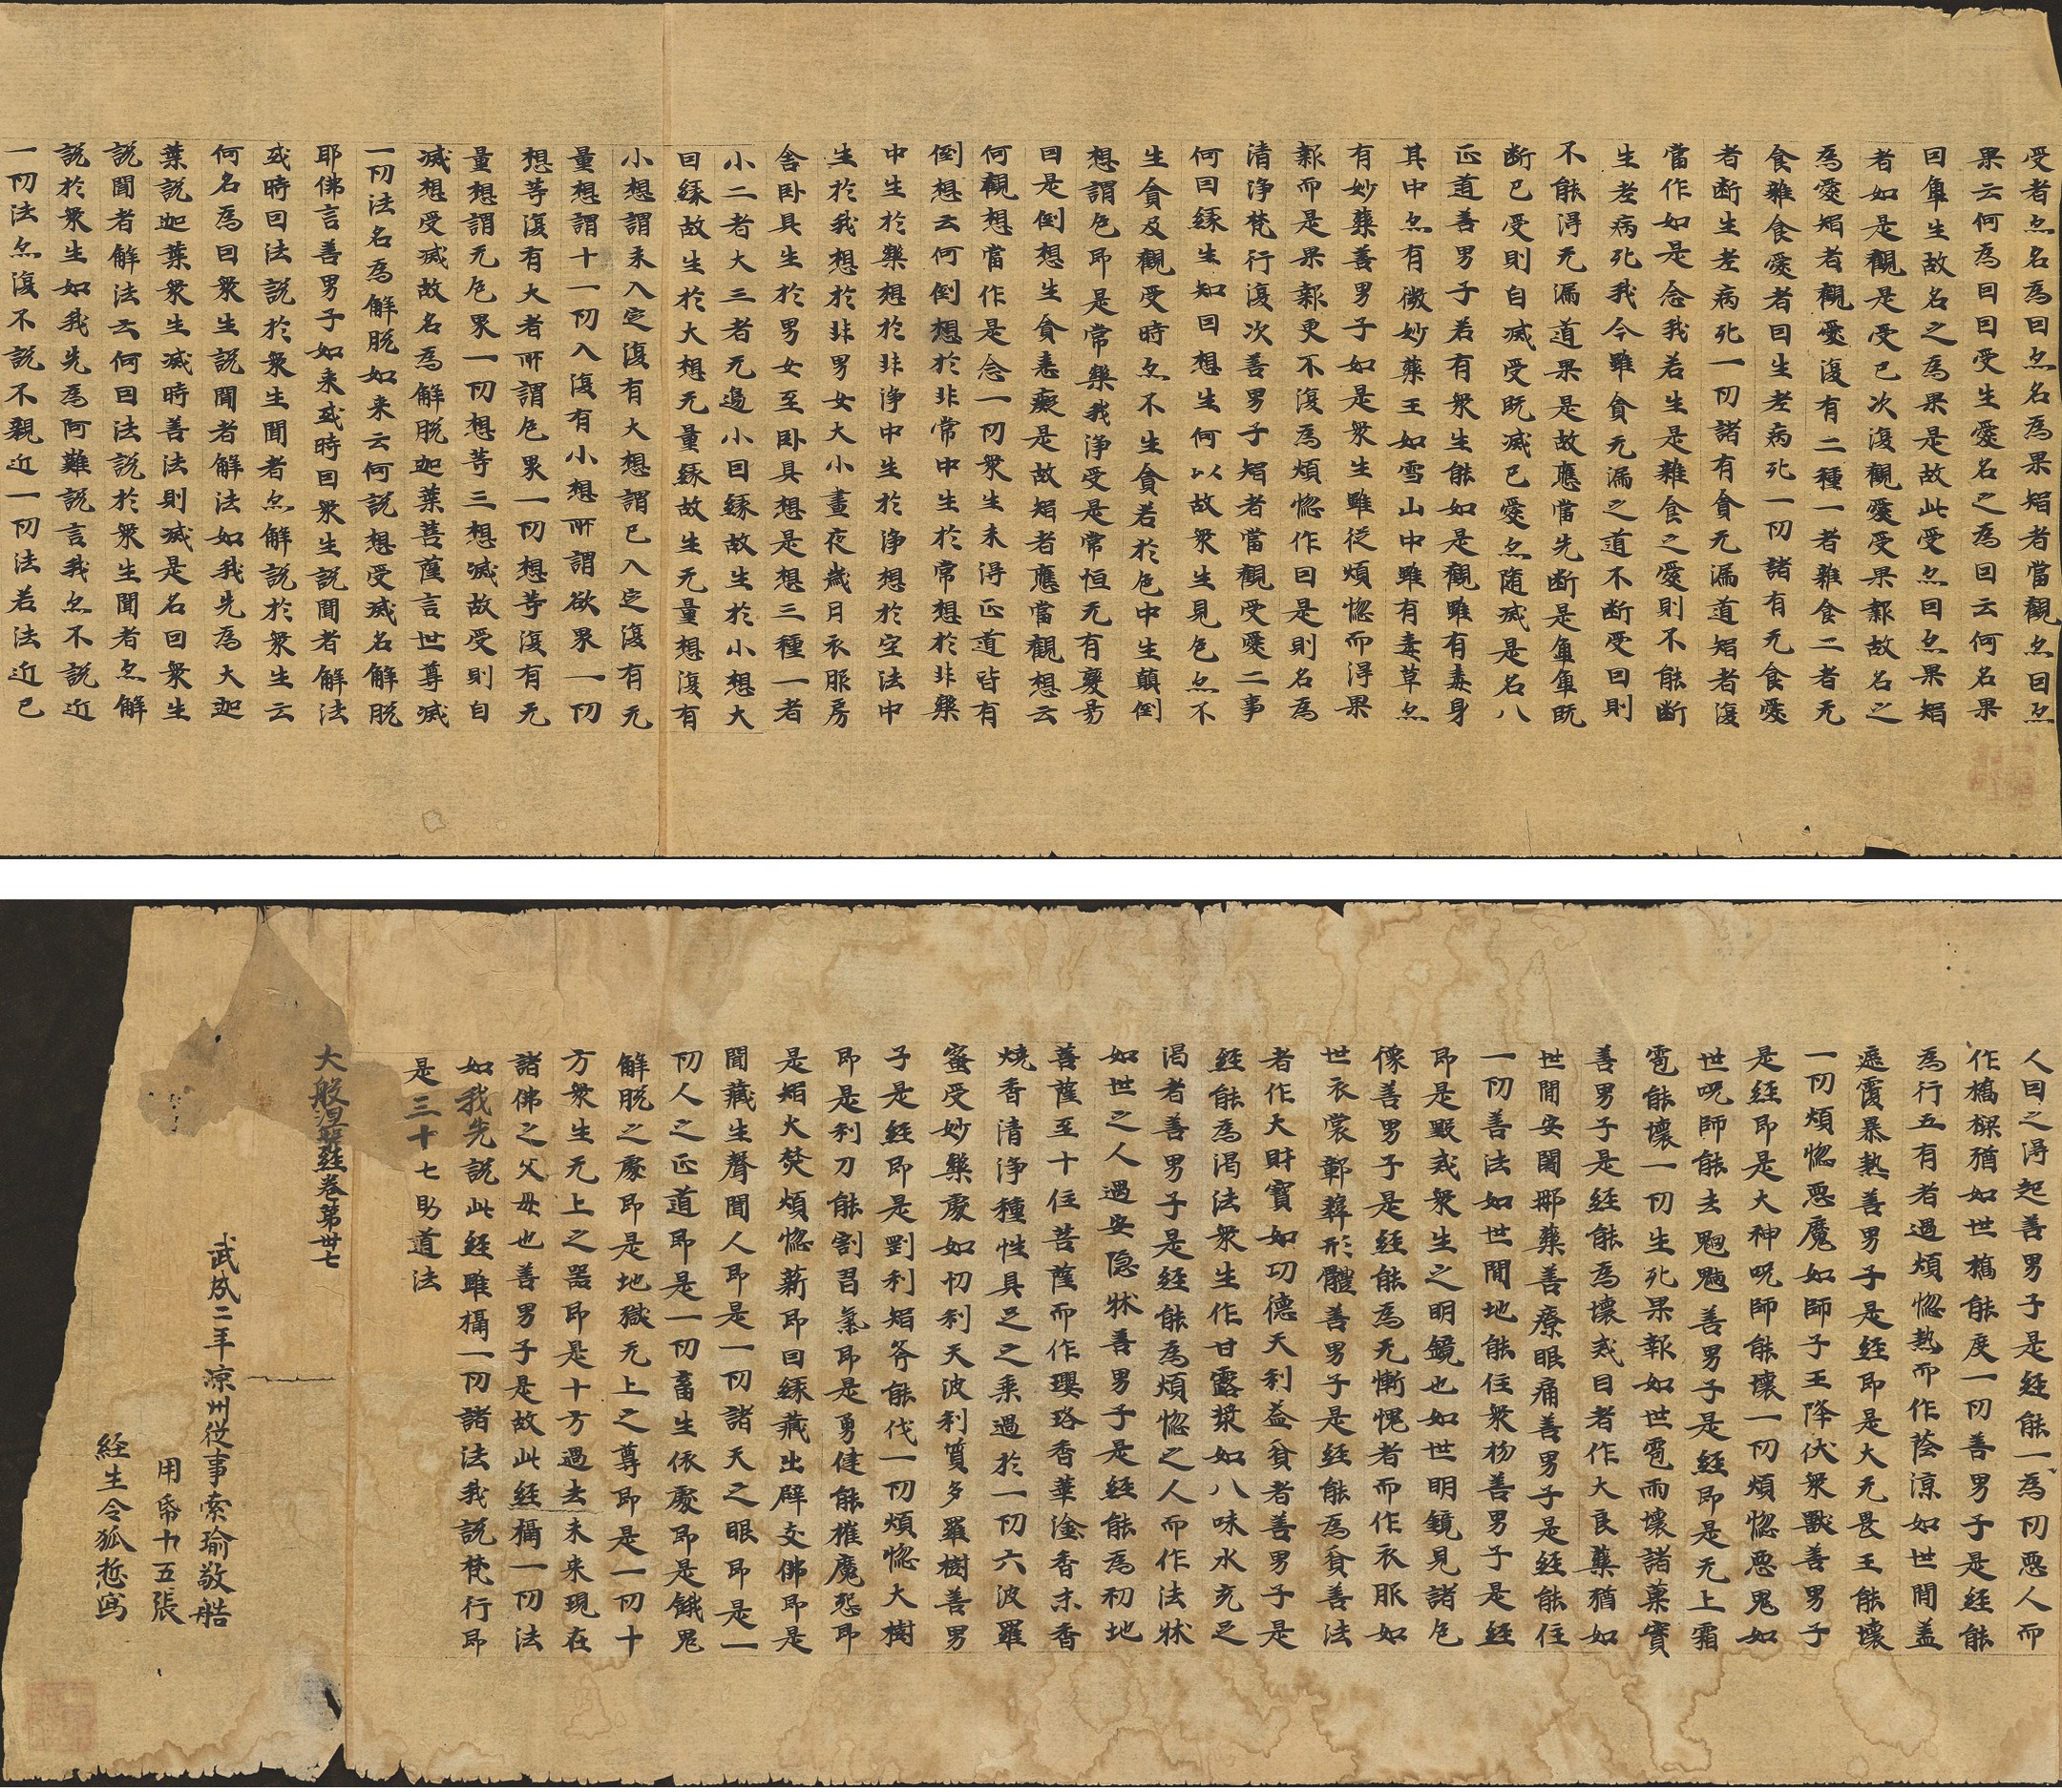 受者亦名為因亦名為果智者當觀亦因亦
果云何為因因受生愛名之為因云何名果
因觸生故名之為果是故此受亦因亦果智
者如是觀是受已次復觀愛受果報故名之
為愛智者觀愛復有二種一者雜食二者无
食雜食愛者因生老病死一切諸有无食愛
者斷生老病死一切諸有貪无漏道智者復
當作如是念我若生是雜食之愛則不能斷
生老病死我今雖貪无漏之道不斷受因則
不能得无漏道果是故應當先斷是觸觸既
斷已受則自滅受既滅已愛亦隨滅是名八
正道善男子若有衆生能如是觀雖有毒身
其中亦有微妙藥王如雪山中雖有毒草亦
有妙藥善男子如是衆生雖從煩惱而得果
報而是果報更不復為煩惱作因是則名為
清淨梵行復次善男子智者當觀受愛二事
何因緣生知因想生何以故衆生見色亦不
生貪及觀受時亦不生貪若於色中生顛倒
想謂色即是常樂我淨受是常恒无有變易
因是倒想生貪恚癡是故智者應當觀想云
何觀想當作是念一切衆生未得正道皆有
倒想云何倒想於非常中生於常想於非樂
中生於樂想於非淨中生於淨想於空法中
生於我想於非男女大小晝夜歲月衣服房
舍卧具生於男女至卧具想是想三種一者
小二者大三者无邊小因緣故生於小想大
因緣故生於大想无量緣故生无量想復有
小想謂未入定復有大想謂已入定復有无
量想謂十一切入復有小想所謂欲界一切
想等復有大者所謂色界一切想等復有无
量想謂无色界一切想等三想滅故受則自
滅想受滅故名為解脫迦葉菩薩言世尊滅
一切法名為解脫如来云何說想受滅名解脫
耶佛言善男子如来或時因衆生說聞者解法
或時因法說於衆生聞者亦解說於衆生云
何名為因衆生說聞者解法如我先為大迦
葉說迦葉衆生滅時善法則滅是名因衆生
說聞者解法云何因法說於衆生聞者亦解
說於衆生如我先為阿難說言我亦不說近
一切法亦復不說不親近一切法若法近已
人因之得起善男子是經能一為切惡人而
作橋樑猶如世橋能度一切善男子是經能
為行五有者遇煩惱熱而作蔭凉如世間蓋
遮覆暴熱善男子是經即是大无畏王能壞
一切煩惱惡魔如師子王降伏衆獸善男子
是經即是大神呪師能壞一切煩惱惡鬼如
世呪師能去魍魎善男子是經即是无上霜
雹能壞一切生死果報如世雹雨壞諸菓實
善男子是經能為壞戒目者作大良藥猶如
世間安闍那藥善療眼痛善男子是經能住
一切善法如世間地能住衆物善男子是經
即是毀戒衆生之明鏡也如世明鏡見諸色
像善男子是經能為无慚愧者而作衣服如
世衣裳鄣蔽形體善男子是經能為貧善法
者作大財寶如功德天利益貧者善男子是
經能為渴法衆生作甘露漿如八味水充足
渴者善男子是經能為煩惱之人而作法牀
如世之人遇安隱牀善男子是經能為初地
菩薩至十住菩薩而作瓔珞香華塗香末香
燒香清淨種性具足之乘過於一切六波羅
蜜受妙樂處如忉利天波利質多羅樹善男
子是經即是剛利智斧能伐一切煩惱大樹
即是利刀能割習氣即是勇健能摧魔怨即
是智火焚煩惱薪即因緣藏出辟支佛即是
聞藏生聲聞人即是一切諸天之眼即是一
切人之正道即是一切畜生依處即是餓鬼
解脫之處即是地獄无上之尊即是一切十
方衆生无上之器即是十方過去未来現在
諸佛之父母也善男子是故此經攝一切法
如我先說此經雖攝一切諸法我說梵行即
是三十七助道法
大般涅槃經卷第卅七
武成二年涼州從事索瑜敬造
用帋廿五張
經生令狐悊寫